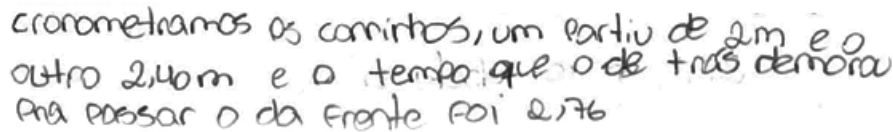 cronometramos os carrinhos, um partiu de 2m e o
outro 2,40m e o tempo que o de trás demorou
pra passar o da frente foi 2,76